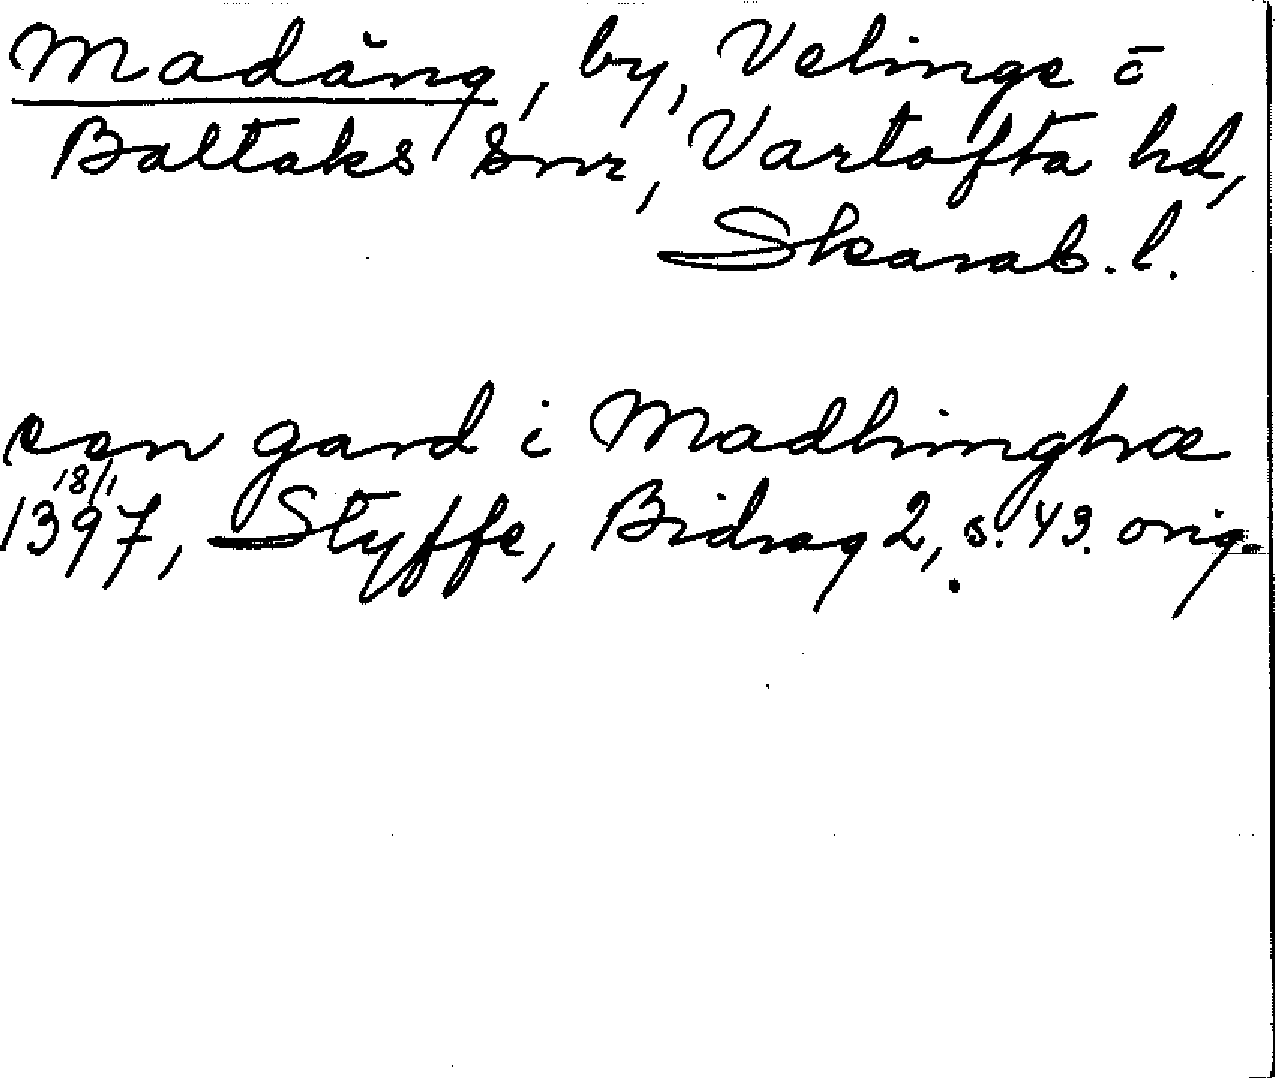 Madäng, by, Velinge o
Baltaks snr, Vartofta hd,
Skarab. l.
een gard i Madhinghæ
18/1
1397, Styffe, Bidrag 2, s. 43. orig.